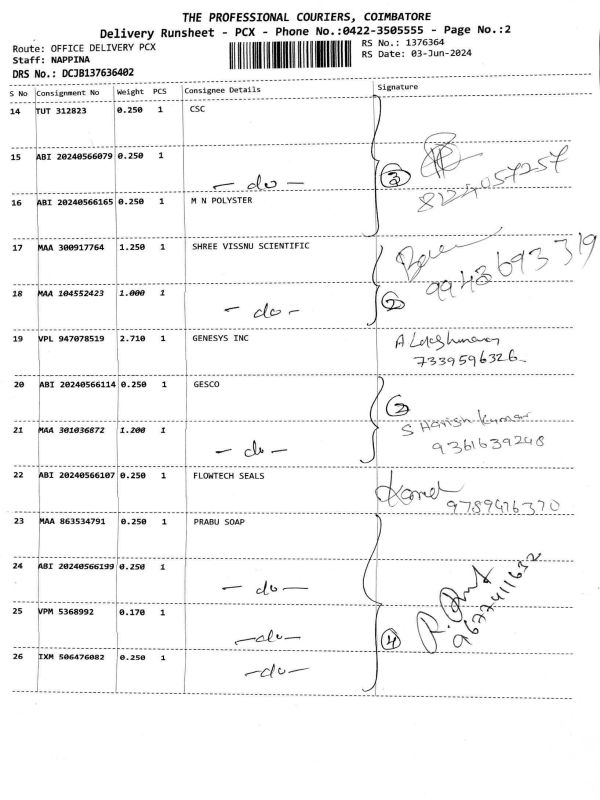 THE PROFESSIONAL COURIERS, COIMBATORE
Delivery Runsheet - PCX - Phone No.:0422-3505555 - Page No.:2
Route: OFFICE DELIVERY PCX RS No.: 1376364
Staff: NAPPINA RS Date: 03-Jun-2024
DRS No.: DCJB137636402
S No Consignment No Weight PCS Consignee Details Signature
14 TUT 312823 0.250 1 CSC
15 ABI 20240566079 0.250 1
- do - 3 8124057257
16 ABI 20240566165 0.250 1 M N POLYSTER
17 MAA 300917764 1.250 1 SHREE VISSNU SCIENTIFIC
9943693319
18 MAA 104552423 1.000 1
- do - 2
19 VPL 947078519 2.710 1 GENESYS INC A Lakshmanan
7339596326
20 ABI 20240566114 0.250 1 GESCO
2
S Harish kumar
21 MAA 301036872 1.200 1
- do - 9361639248
22 ABI 20240566107 0.250 1 FLOWTECH SEALS
9789476370
23 MAA 863534791 0.250 1 PRABU SOAP
24 ABI 20240566199 0.250 1
- do -
25 VPM 5368992 0.170 1
- do - 4 9677411632
26 IXM 506476082 0.250 1
- do -